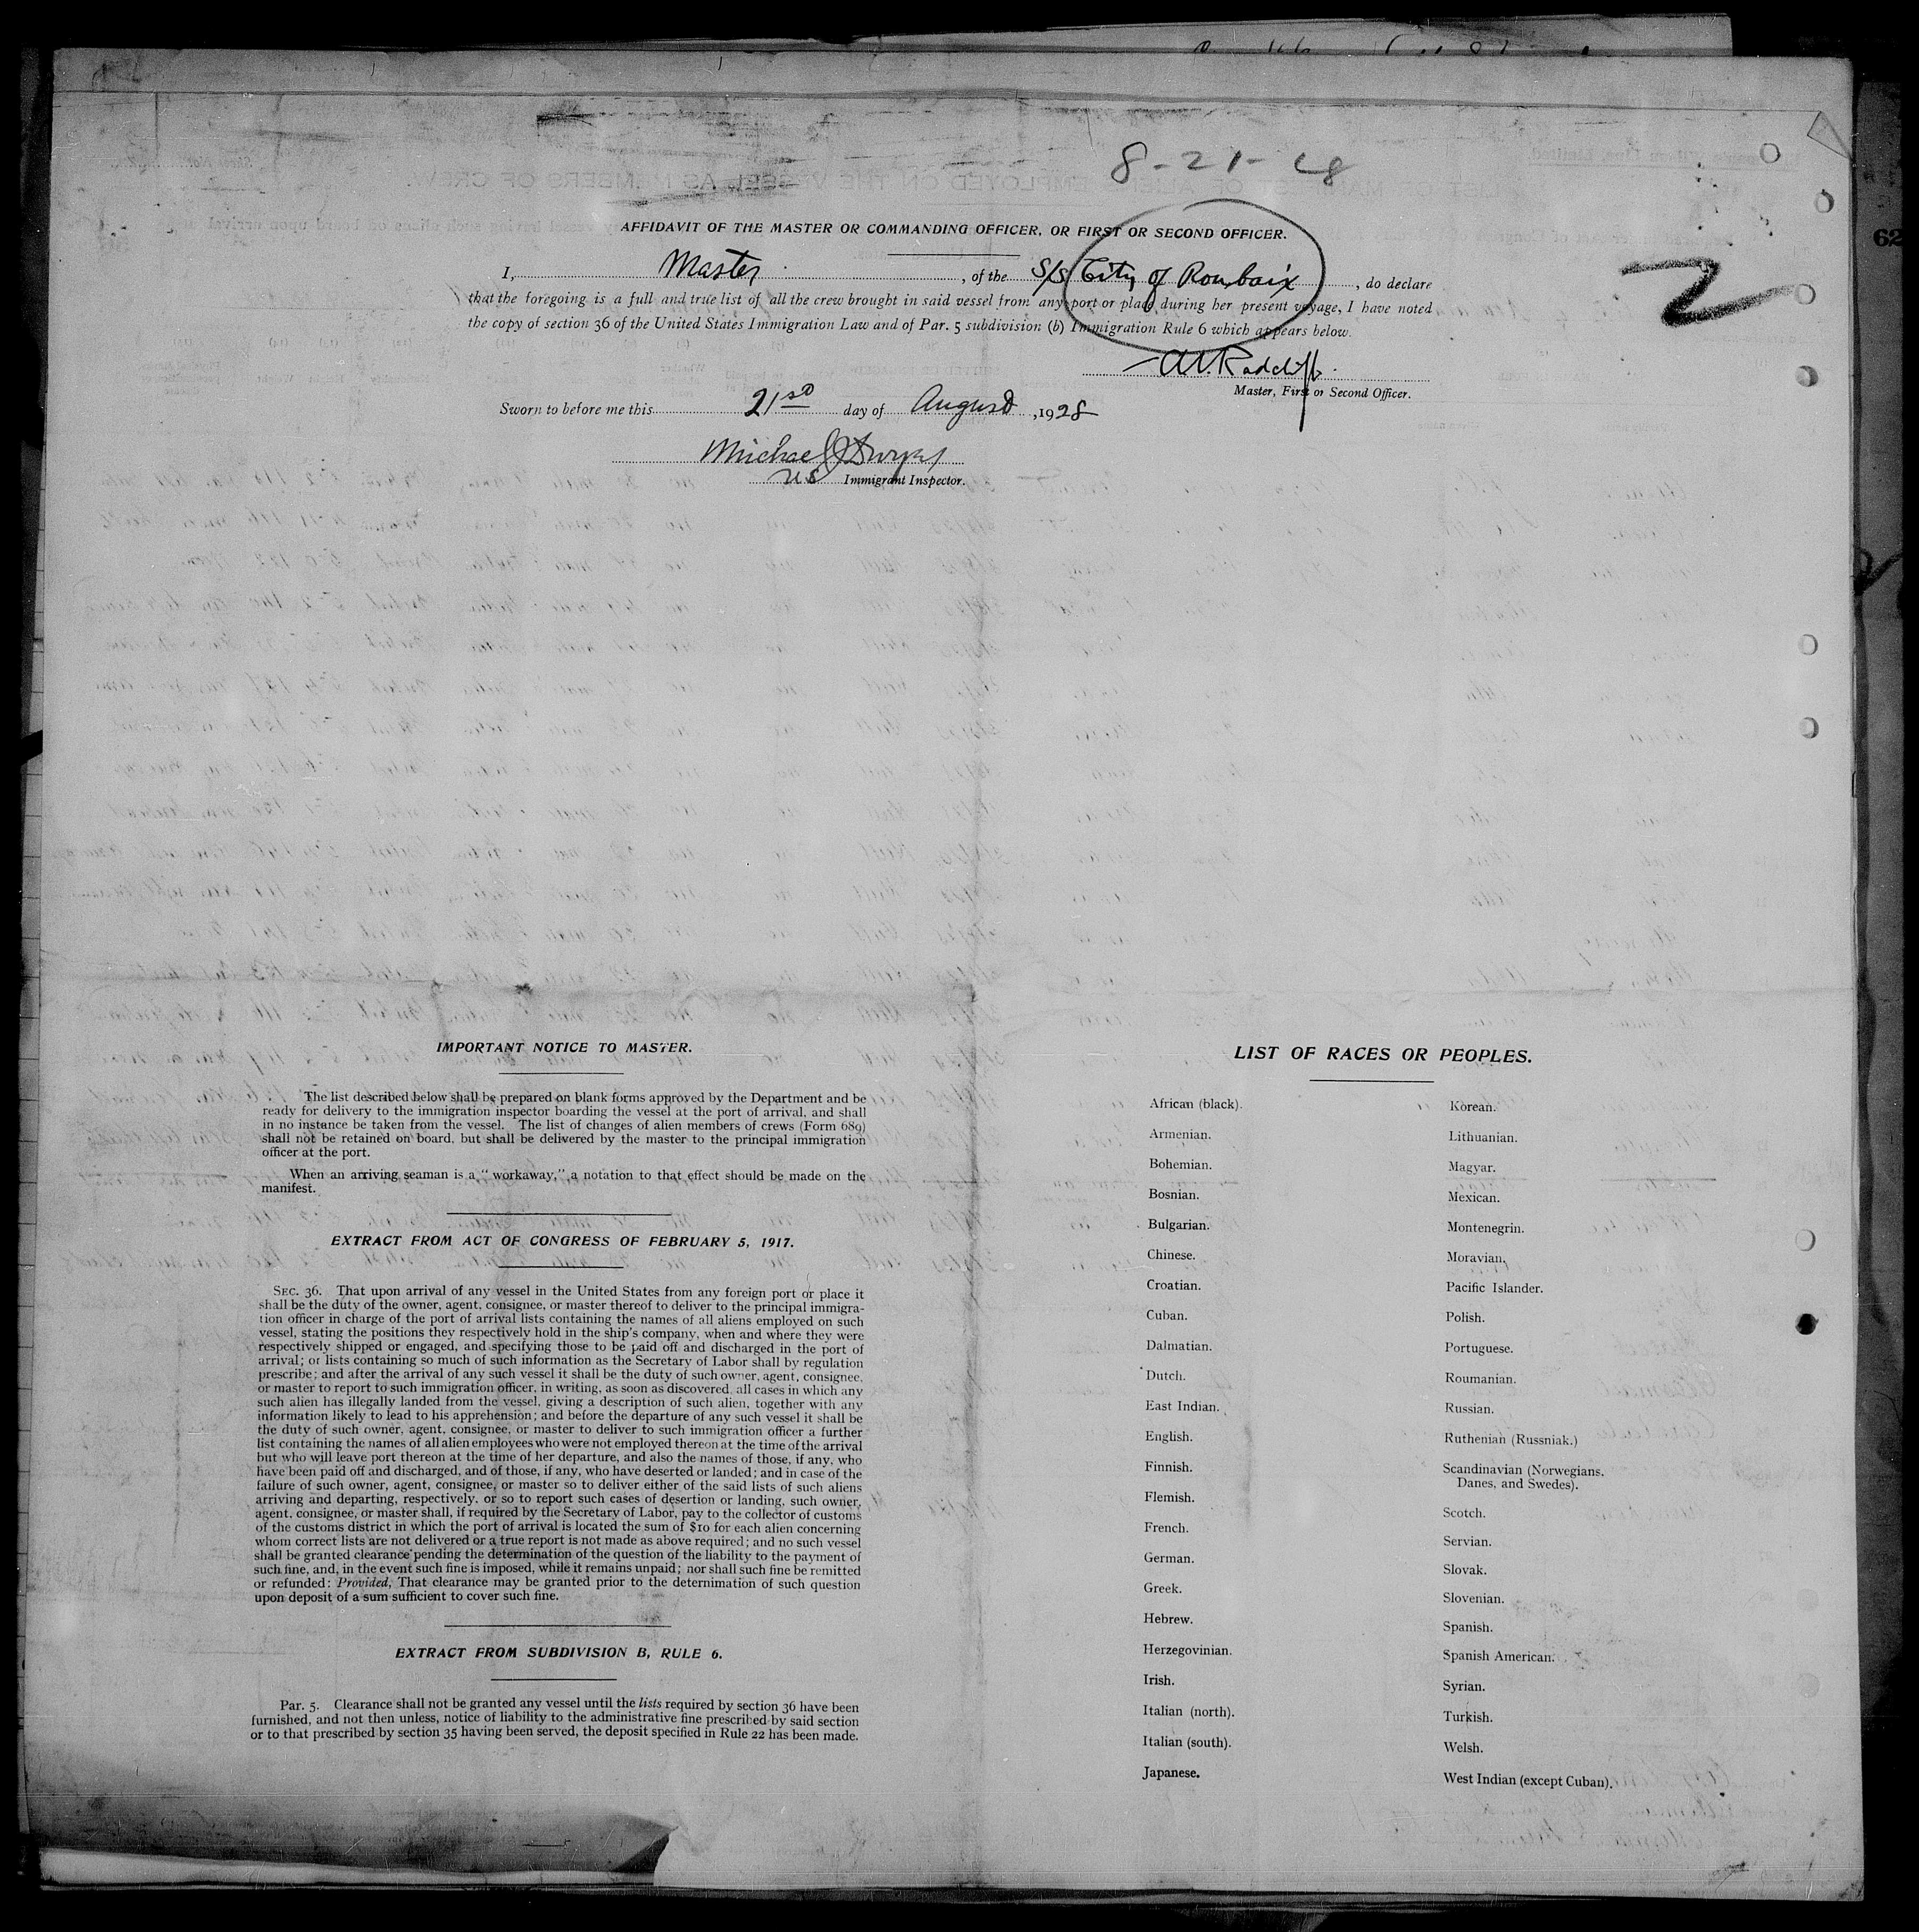 8-21-28
AFFIDAVIT OF THE MASTER OR COMMANDING OFFICER, OR FIRST OR SECOND OFFICER.
I, Master, of the S/S City of Roubaix, do declare
that the foregoing is a full and true list of all the crew brought in said vessel from any port or place during her present voyage, I have noted
the copy of section 36 of the United States Immigration Law and of Par. 5 subdivision (b) Immigration Rule 6 which appears below.
2
62
Master, First or Second Officer.
Sworn to before me this 21st day of August, 1928
Michael
US Immigrant Inspector.
IMPORTANT NOTICE TO MASTER.
The list described below shall be prepared on blank forms approved by the Department and be
ready for delivery to the immigration inspector boarding the vessel at the port of arrival, and shall
in no instance be taken from the vessel. The list of changes of alien members of crews (Form 689)
shall not be retained on board, but shall be delivered by the master to the principal immigration
officer at the port.
When an arriving seaman is a "workaway," a notation to that effect should be made on the
manifest.
EXTRACT FROM ACT OF CONGRESS OF FEBRUARY 5, 1917.
SEC. 36. That upon arrival of any vessel in the United States from any foreign port or place it
shall be the duty of the owner, agent, consignee, or master thereof to deliver to the principal immigra-
tion officer in charge of the port of arrival lists containing the names of all aliens employed on such
vessel, stating the positions they respectively hold in the ship's company, when and where they were
respectively shipped or engaged, and specifying those to be paid off and discharged in the port of
arrival; or lists containing so much of such information as the Secretary of Labor shall by regulation
prescribe; and after the arrival of any such vessel it shall be the duty of such owner, agent, consignee,
or master to report to such immigration officer, in writing, as soon as discovered, all cases in which any
such alien has illegally landed from the vessel, giving a description of such alien, together with any
information likely to lead to his apprehension; and before the departure of any such vessel it shall be
the duty of such owner, agent, consignee, or master to deliver to such immigration officer a further
list containing the names of all alien employees who were not employed thereon at the time of the arrival
but who will leave port thereon at the time of her departure, and also the names of those, if any, who
have been paid off and discharged, and of those, if any, who have deserted or landed; and in case of the
failure of such owner, agent, consignee, or master so to deliver either of the said lists of such aliens
arriving and departing, respectively, or so to report such cases of desertion or landing, such owner,
agent, consignee, or master shall, if required by the Secretary of Labor, pay to the collector of customs
of the customs district in which the port of arrival is located the sum of $10 for each alien concerning
whom correct lists are not delivered or a true report is not made as above required; and no such vessel
shall be granted clearance pending the determination of the question of the liability to the payment of
such fine, and, in the event such fine is imposed, while it remains unpaid; nor shall such fine be remitted
or refunded: Provided, That clearance may be granted prior to the deternimation of such question
upon deposit of a sum sufficient to cover such fine.
EXTRACT FROM SUBDIVISION B, RULE 6.
Par. 5. Clearance shall not be granted any vessel until the lists required by section 36 have been
furnished, and not then unless, notice of liability to the administrative fine prescribed by said section
or to that prescribed by section 35 having been served, the deposit specified in Rule 22 has been made.
LIST OF RACES OR PEOPLES.
African (black).
Armenian.
Bohemian.
Bosnian.
Bulgarian.
Chinese.
Croatian.
Cuban.
Dalmatian.
Dutch.
East Indian.
English.
Finnish.
Flemish.
French.
German.
Greek.
Hebrew.
Herzegovinian.
Irish.
Italian (north).
Italian (south).
Japanese.
Korean.
Lithuanian.
Magyar.
Mexican.
Montenegrin.
Moravian.
Pacific Islander.
Polish.
Portuguese.
Roumanian.
Russian.
Ruthenian (Russniak.)
Scandinavian (Norwegians,
Danes, and Swedes).
Scotch.
Servian.
Slovak.
Slovenian.
Spanish.
Spanish American.
Syrian.
Turkish.
Welsh.
West Indian (except Cuban).